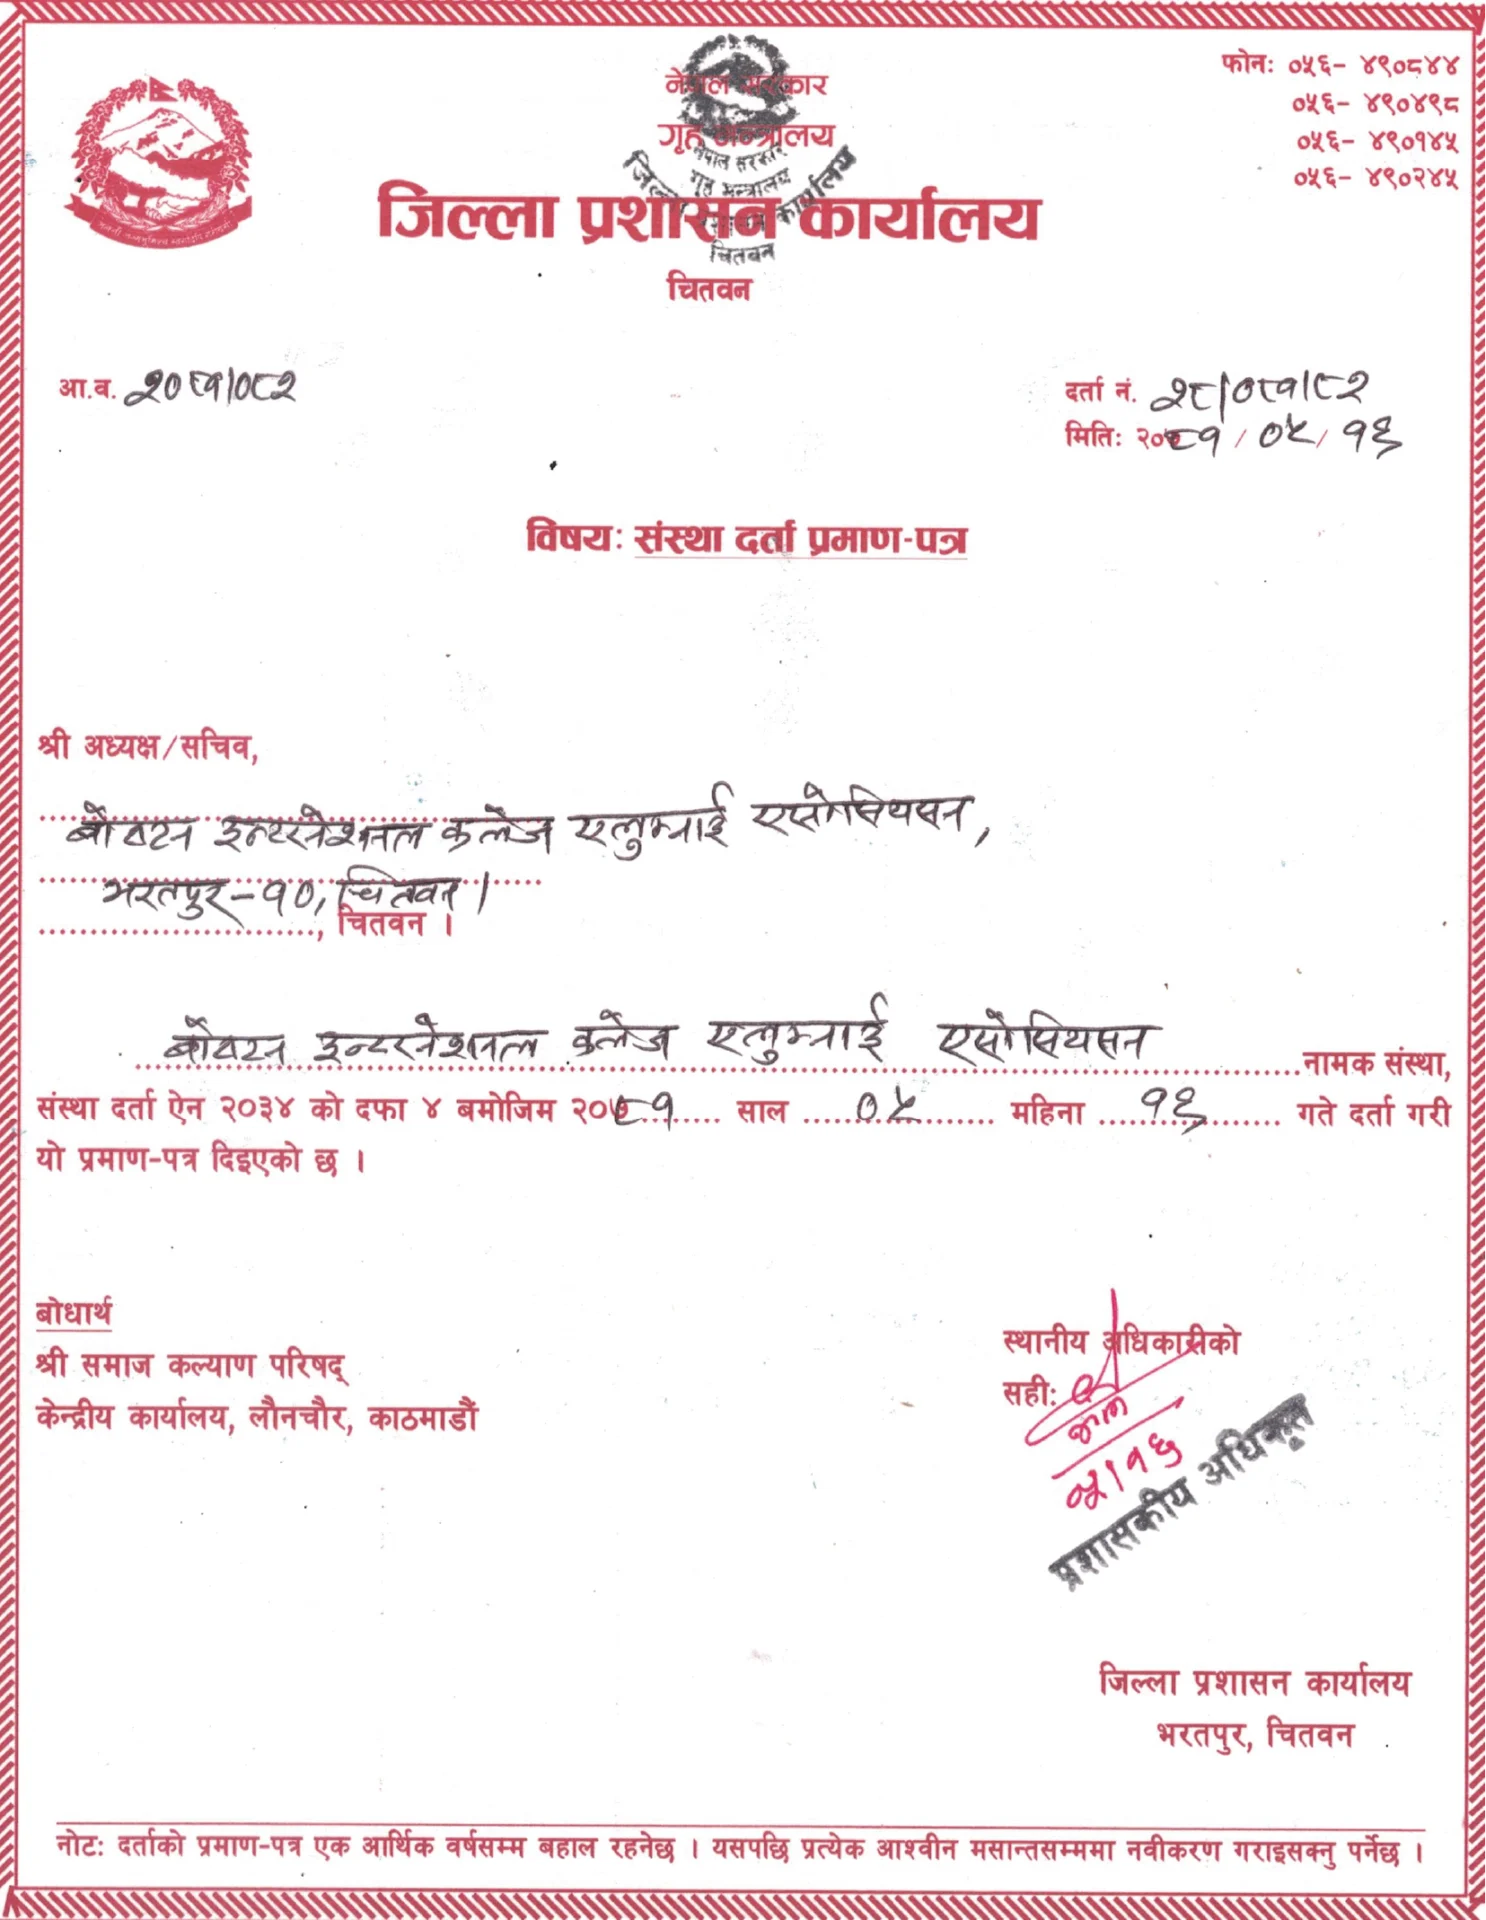 नेपाल सरकार
गृह मन्त्रालय
जिल्ला प्रशासन कार्यालय
चितवन
फोन: ०५६- ४९०८४४
०५६- ४९०४९८
०५६- ४९०१४५
०५६- ४९०२४५
नेपाल सरकार
गृह मन्त्रालय
जिल्ला प्रशासन कार्यालय
चितवन
आ.व. २०८१/०८२
दर्ता नं. २८/०८१/८२
मिति: २०८१/०५/१६
विषय: संस्था दर्ता प्रमाण-पत्र
श्री अध्यक्ष/सचिव,
बोस्टन इन्टरनेशनल कलेज एलुम्नाई एसोसियसन,
भरतपुर-१०, चितवन।
, चितवन ।
बोस्टन इन्टरनेशनल कलेज एलुम्नाई एसोसियसन नामक संस्था,
संस्था दर्ता ऐन २०३४ को दफा ४ बमोजिम २०८१ साल ०५ महिना १६ गते दर्ता गरी
यो प्रमाण-पत्र दिइएको छ ।
बोधार्थ
श्री समाज कल्याण परिषद्
केन्द्रीय कार्यालय, लौनचौर, काठमाडौं
स्थानीय अधिकारीको
सही:
०५/१६
प्रशासकीय अधिकृत
जिल्ला प्रशासन कार्यालय
भरतपुर, चितवन
नोट: दर्ताको प्रमाण-पत्र एक आर्थिक वर्षसम्म बहाल रहनेछ । यसपछि प्रत्येक आश्वीन मसान्तसम्ममा नवीकरण गराइसक्नु पर्नेछ ।